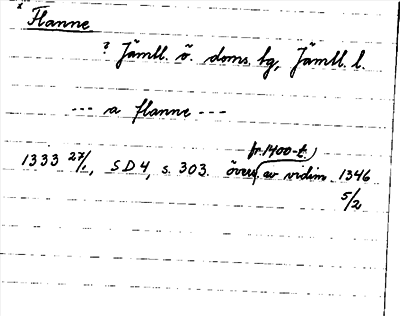 * Flanne
? Jämtl. ö. doms. tg, Jämtl. l.
--- a flanne ---
fr. 1400-t.
1333 27/1, SD4, s. 303. övers. av vidim. 1346
5/2